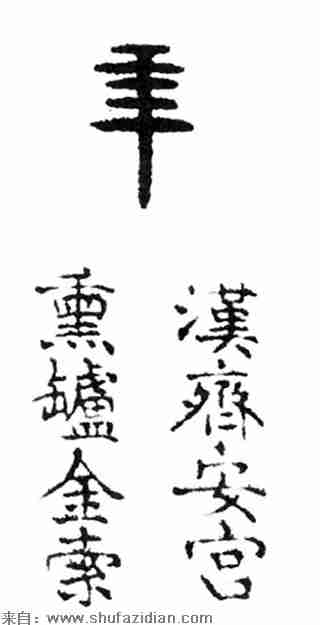 漢齊安宮
熏罏金索
来自：www.shufazidian.com